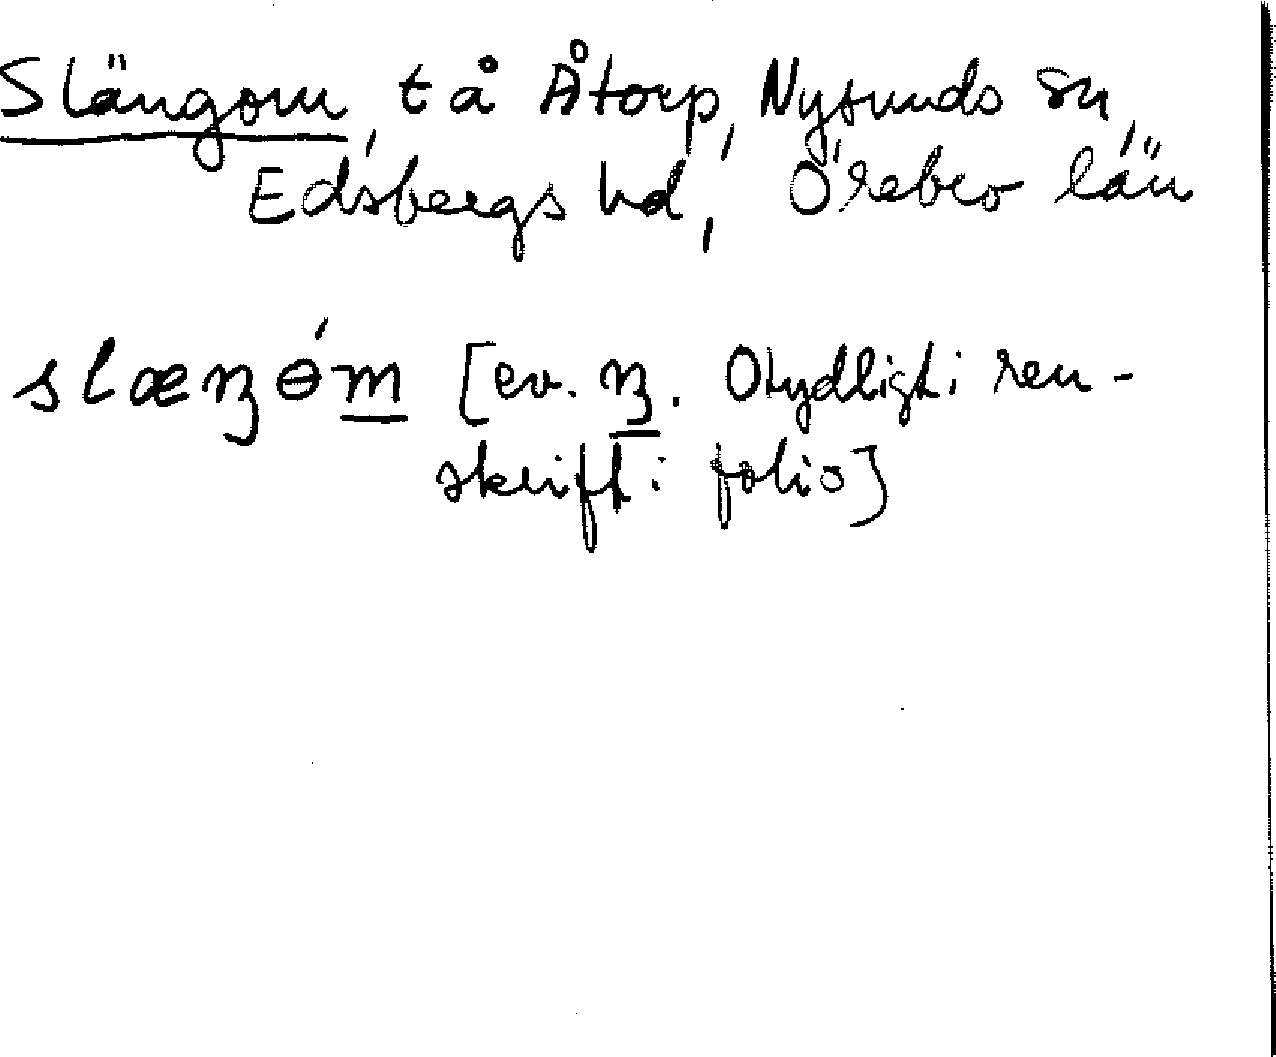 Slängom, t å Åtorp, Nysunds sn,
Edsbergs hd, Örebro län
slæŋɵ́m [ev. ŋ. Otydligt i ren-
skrift i folio]